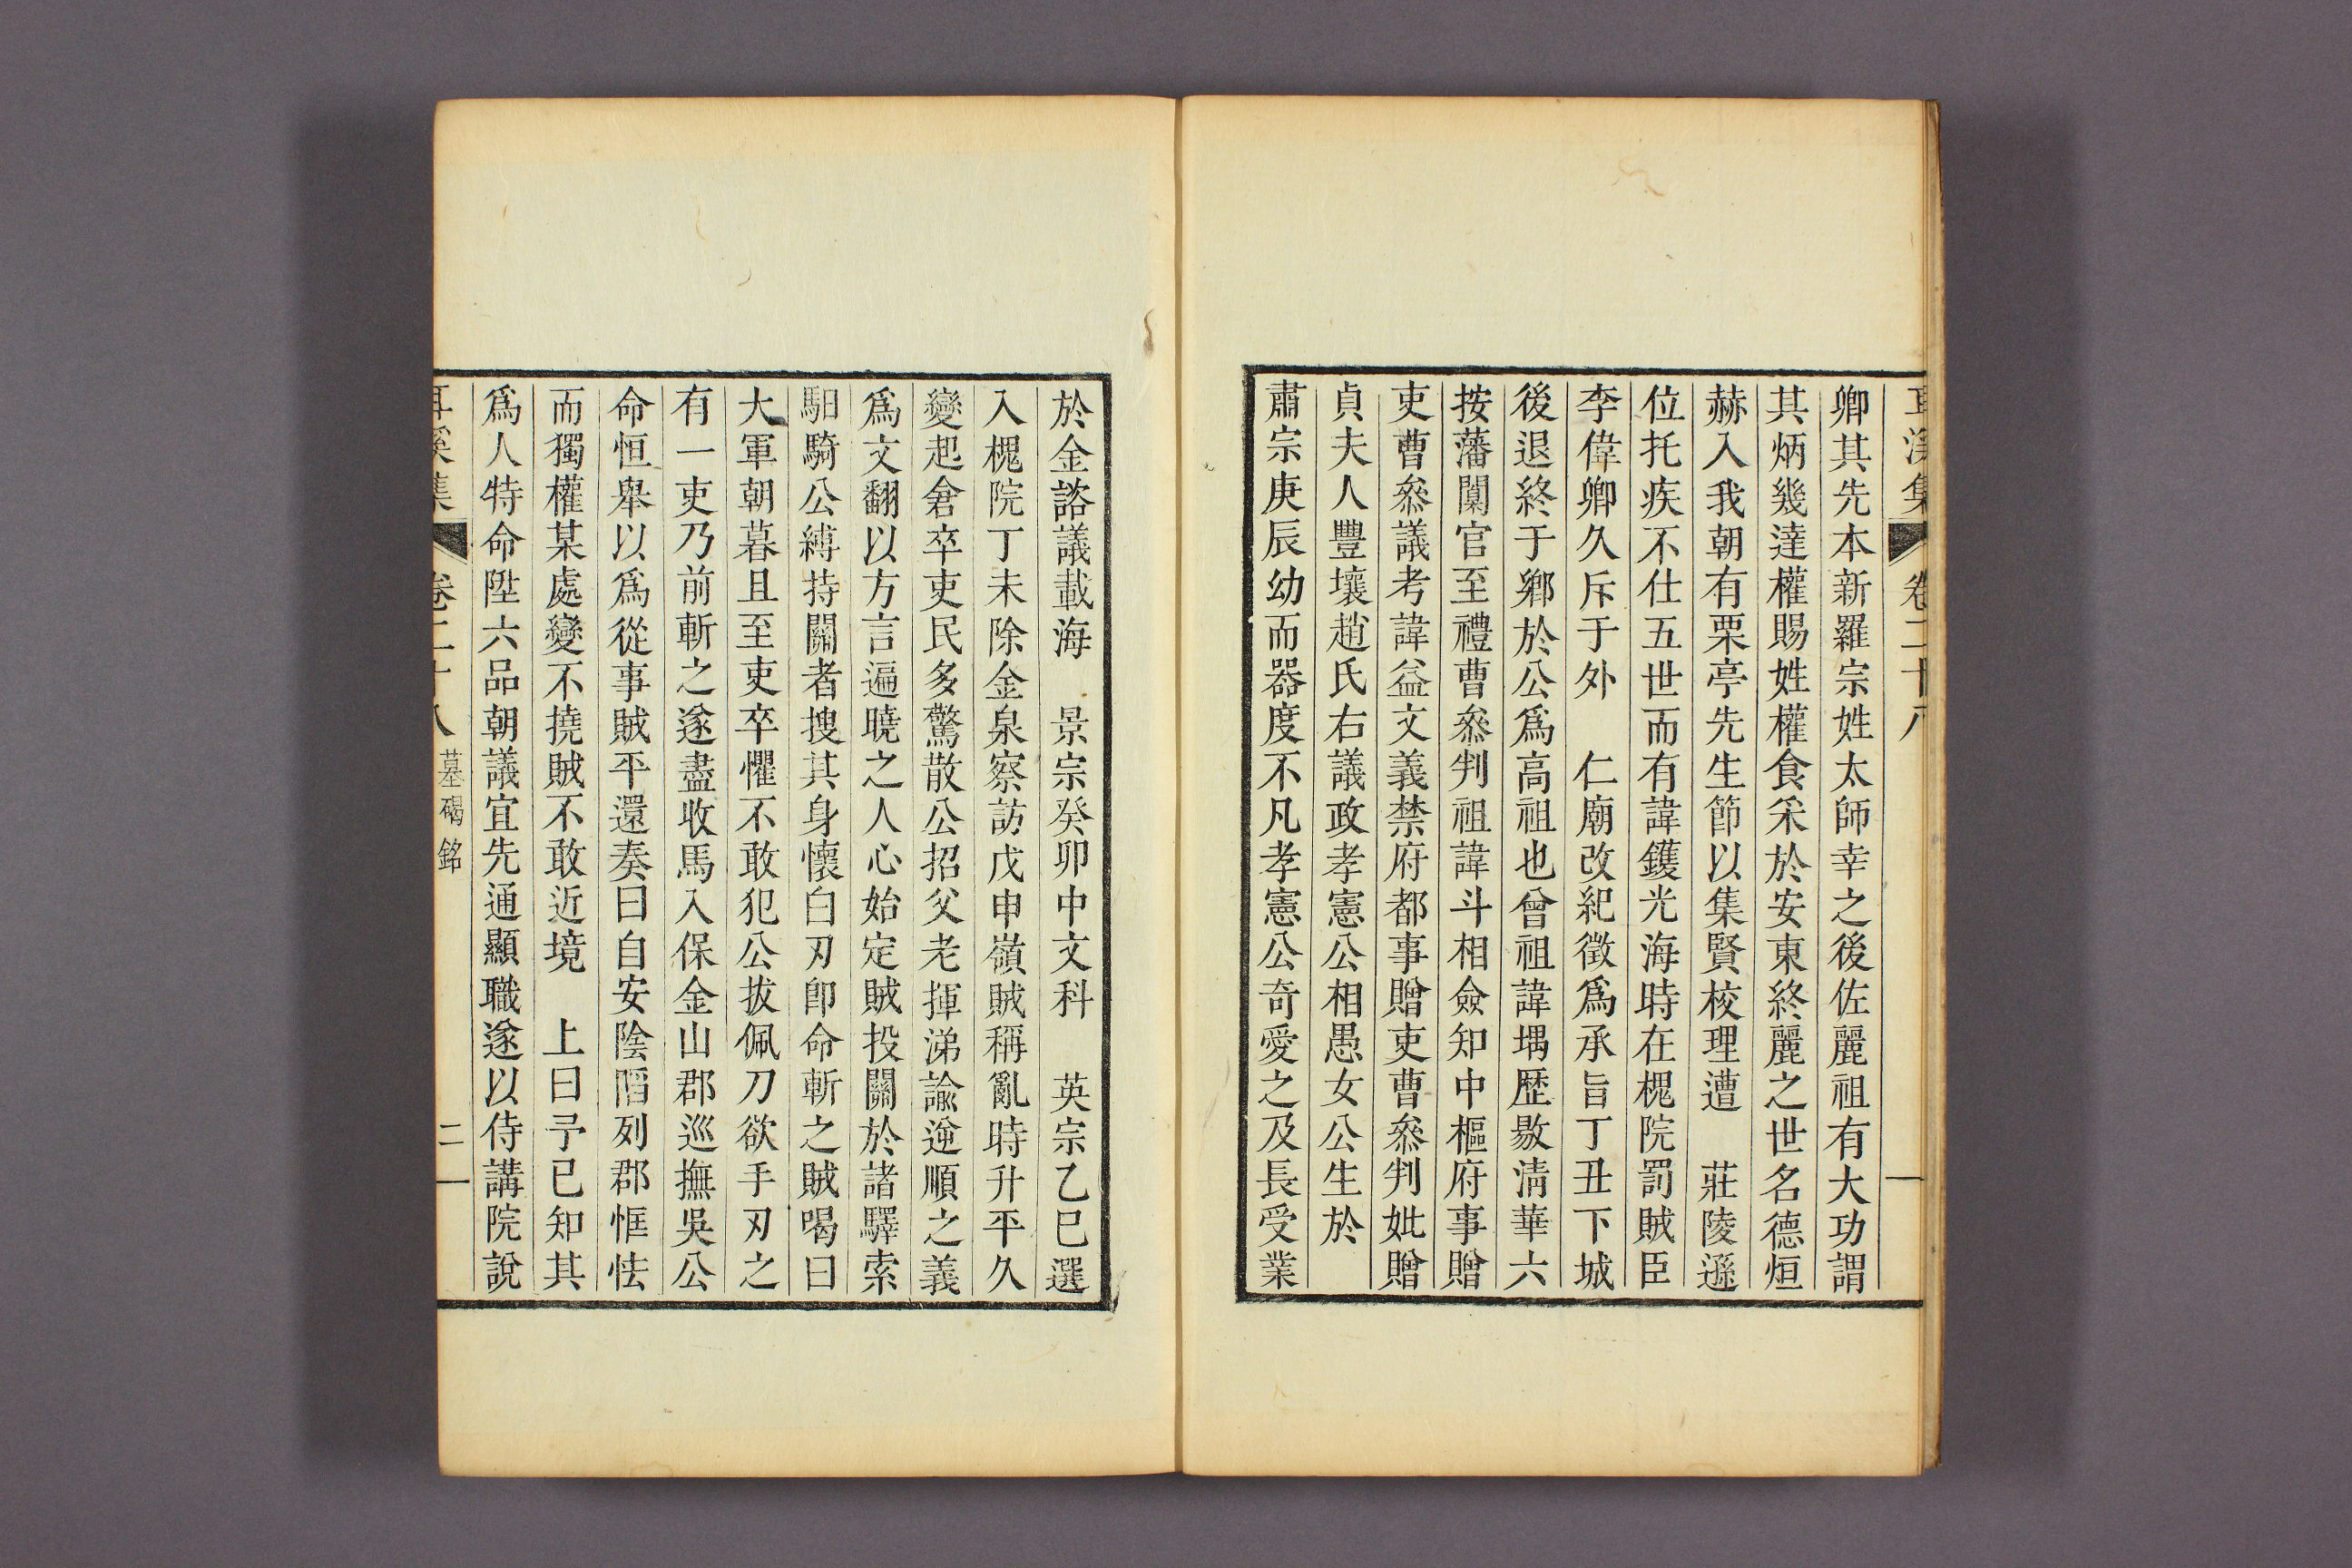 耳溪集 卷二十八 一
卿其先本新羅宗姓太師幸之後佐麗祖有大功謂
其炳幾達權賜姓權食采於安東終麗之世名德烜
赫入我朝有栗亭先生節以集賢校理遭 莊陵遜
位托疾不仕五世而有諱鑊光海時在槐院罰賊臣
李偉卿久斥于外 仁廟改紀徵爲承旨丁丑下城
後退終于鄕於公爲高祖也曾祖諱堣歷敭淸華六
按藩閫官至禮曹叅判祖諱斗相僉知中樞府事贈
吏曹叅議考諱益文義禁府都事贈吏曹叅判妣贈
貞夫人豐壤趙氏右議政孝憲公相愚女公生於
肅宗庚辰幼而器度不凡孝憲公奇愛之及長受業
於金諮議載海 景宗癸卯中文科 英宗乙巳選
入槐院丁未除金泉察訪戊申嶺賊稱亂時升平久
變起倉卒吏民多驚散公招父老揮涕諭逆順之義
爲文翻以方言遍曉之人心始定賊投關於諸驛索
馹騎公縛持關者搜其身懷白刃卽命斬之賊喝曰
大軍朝暮且至吏卒懼不敢犯公拔佩刀欲手刃之
有一吏乃前斬之遂盡收馬入保金山郡巡撫吳公
命恒舉以爲從事賊平還奏曰自安陰陷列郡恇怯
而獨權某處變不撓賊不敢近境 上曰予已知其
爲人特命陞六品朝議宜先通顯職遂以侍講院說
耳溪集 卷二十八 墓碣銘 二